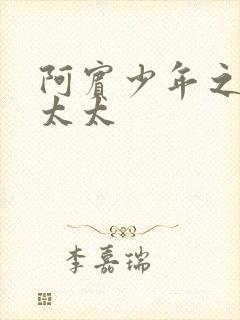 阿賓少年之
太太
李嘉瑞